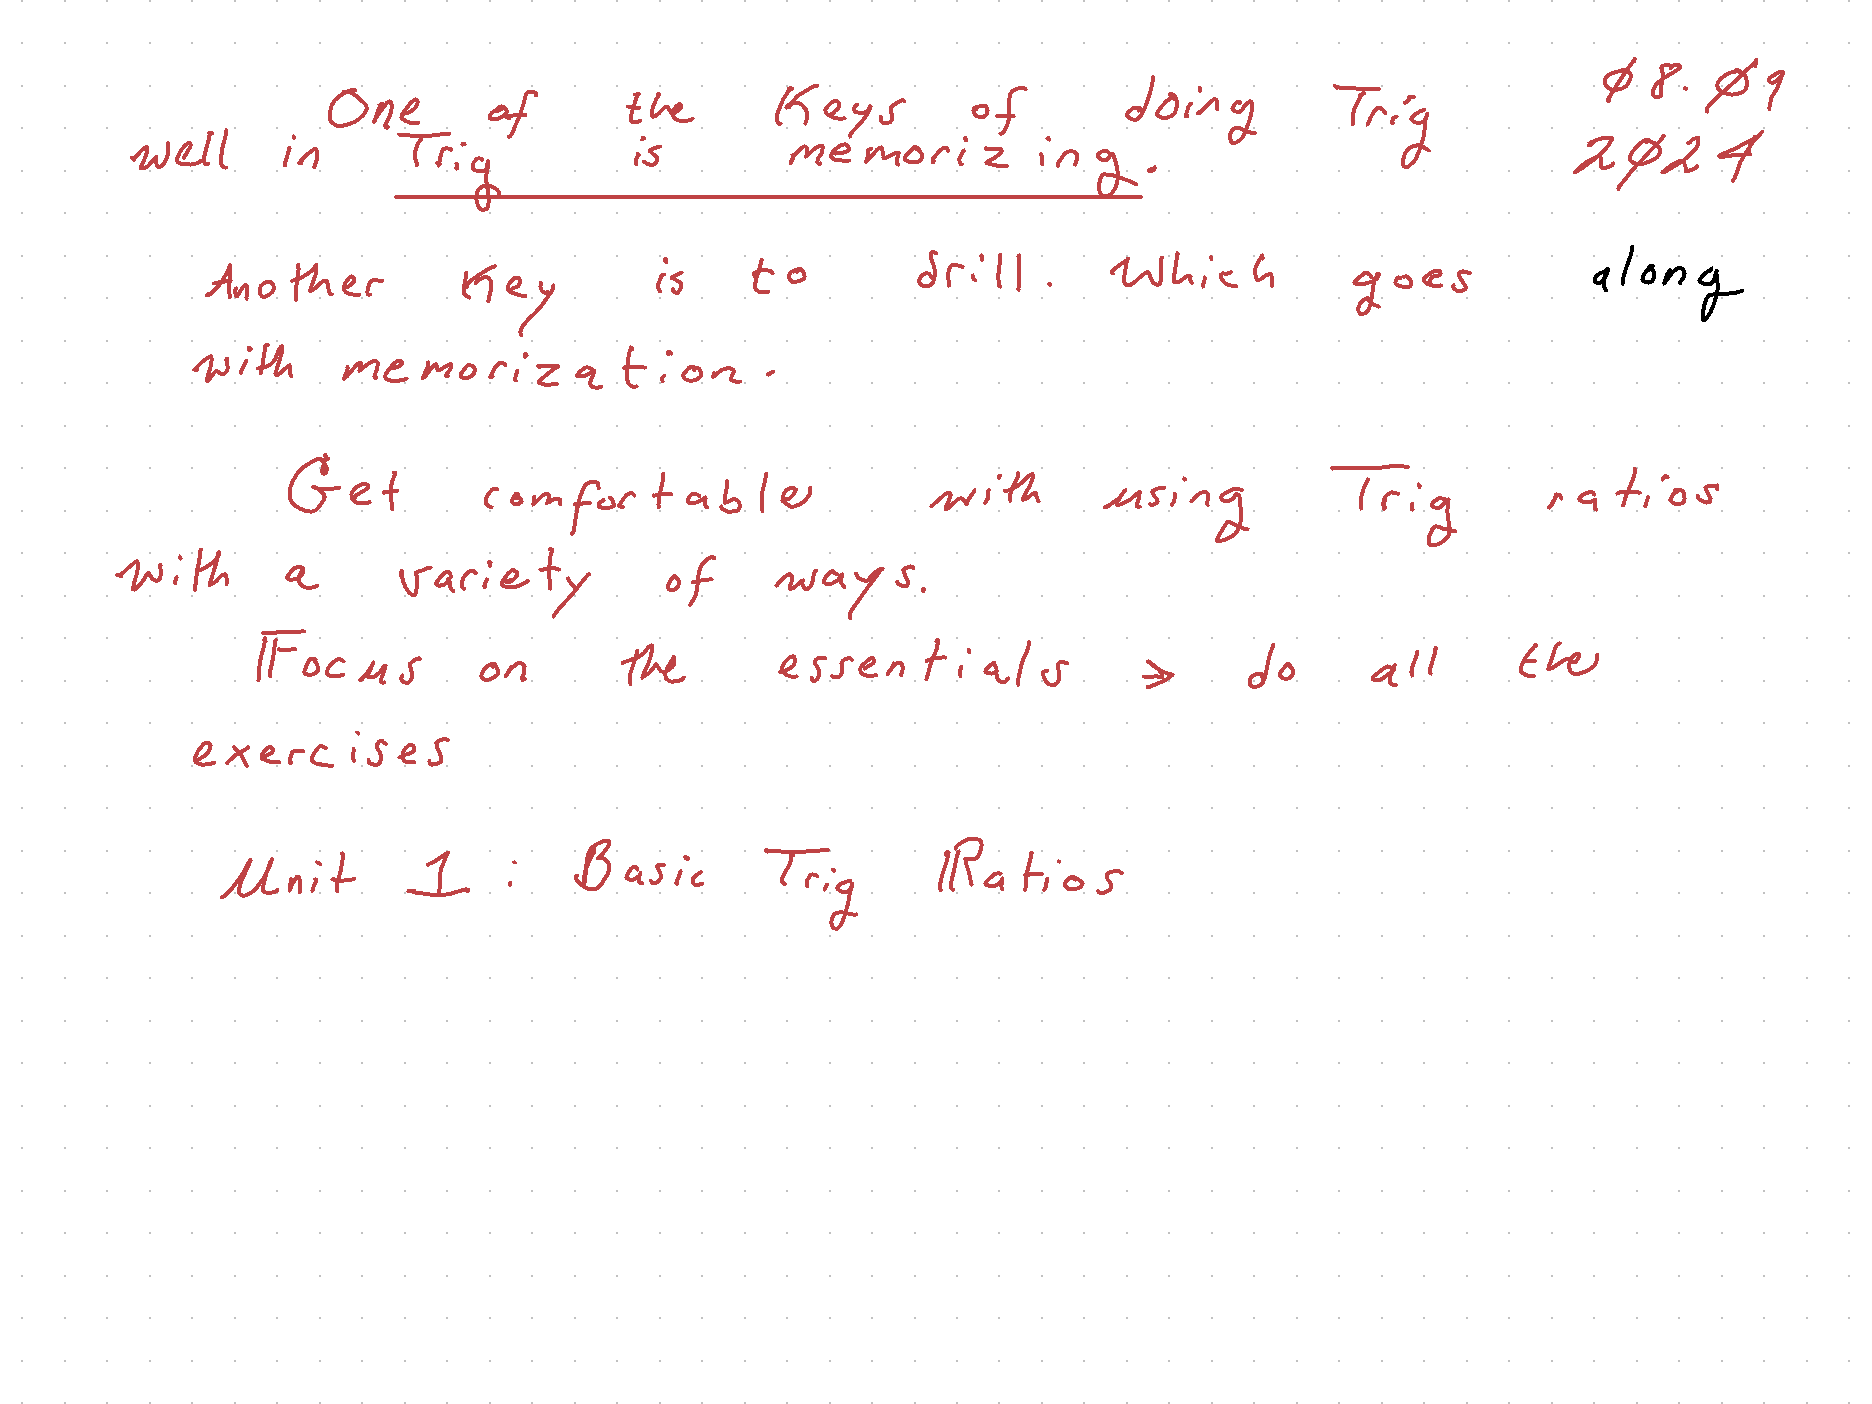 One of the Keys of doing Trig ø8.ø9
well in Trig is memorizing. 2ø24
Another Key is to drill. Which goes along
with memorization.
Get comfortable with using Trig ratios
with a variety of ways.
Focus on the essentials → do all the
exercises
Unit 1 : Basic Trig Ratios